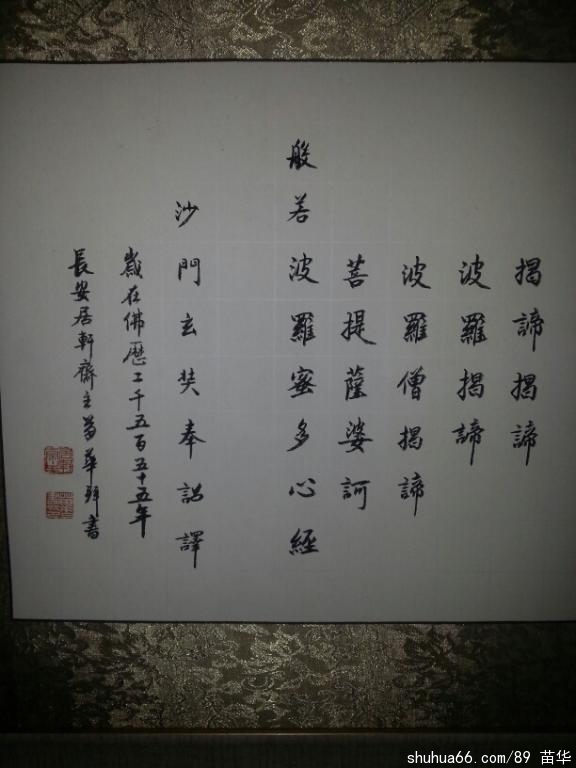 揭諦揭諦
波羅揭諦
波羅僧揭諦
菩提薩婆訶
般若波羅蜜多心經
沙門玄奘奉詔譯
歲在佛歷二千五百五十五年
長安居軒齋主苗華拜書
shuhua66.com/89 苗华